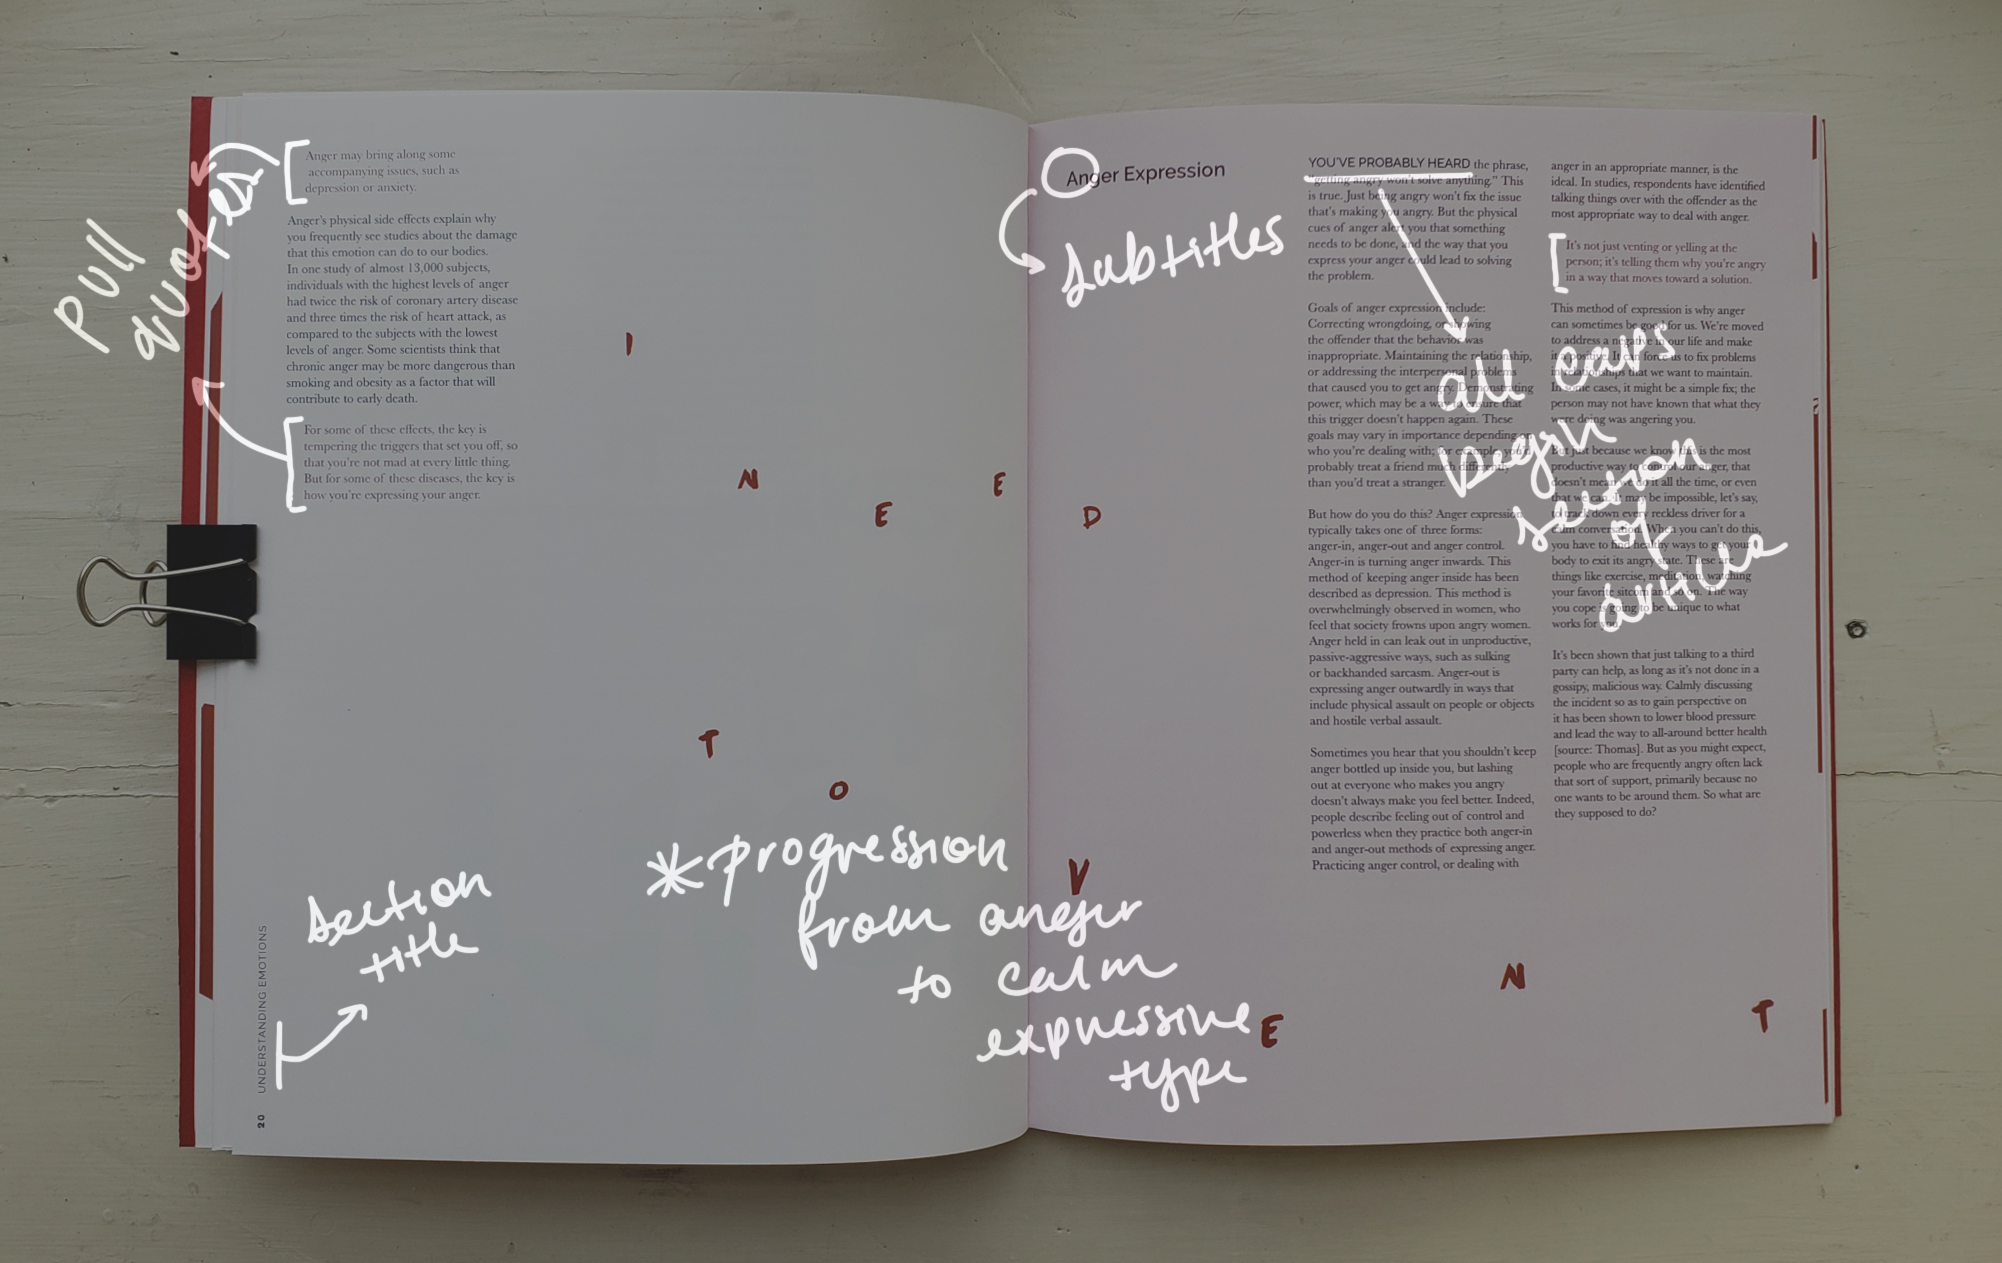 Anger may bring along some
accompanying issues, such as
depression or anxiety.
Anger's physical side effects explain why
you frequently see studies about the damage
that this emotion can do to our bodies.
In one study of almost 13,000 subjects,
individuals with the highest levels of anger
had twice the risk of coronary artery disease
and three times the risk of heart attack, as
compared to the subjects with the lowest
levels of anger. Some scientists think that
chronic anger may be more dangerous than
smoking and obesity as a factor that will
contribute to early death.
For some of these effects, the key is
tempering the triggers that set you off, so
that you're not mad at every little thing.
But for some of these diseases, the key is
how you're expressing your anger.
PULL
QUOTES
I
N E E D
T O
V E N T
section
title
20 UNDERSTANDING EMOTIONS
*progression
from anger
to calm
expressive
type
Anger Expression
subtitles
YOU'VE PROBABLY HEARD the phrase,
"getting angry won't solve anything." This
is true. Just being angry won't fix the issue
that's making you angry. But the physical
cues of anger alert you that something
needs to be done, and the way that you
express your anger could lead to solving
the problem.
Goals of anger expression include:
Correcting wrongdoing, or showing
the offender that the behavior was
inappropriate. Maintaining the relationship,
or addressing the interpersonal problems
that caused you to get angry. Demonstrating
power, which may be a way to ensure that
this trigger doesn't happen again. These
goals may vary in importance depending on
who you're dealing with; for example, you'd
probably treat a friend much differently
than you'd treat a stranger.
But how do you do this? Anger expression
typically takes one of three forms:
anger-in, anger-out and anger control.
Anger-in is turning anger inwards. This
method of keeping anger inside has been
described as depression. This method is
overwhelmingly observed in women, who
feel that society frowns upon angry women.
Anger held in can leak out in unproductive,
passive-aggressive ways, such as sulking
or backhanded sarcasm. Anger-out is
expressing anger outwardly in ways that
include physical assault on people or objects
and hostile verbal assault.
Sometimes you hear that you shouldn't keep
anger bottled up inside you, but lashing
out at everyone who makes you angry
doesn't always make you feel better. Indeed,
people describe feeling out of control and
powerless when they practice both anger-in
and anger-out methods of expressing anger.
Practicing anger control, or dealing with
anger in an appropriate manner, is the
ideal. In studies, respondents have identified
talking things over with the offender as the
most appropriate way to deal with anger.
It's not just venting or yelling at the
person; it's telling them why you're angry
in a way that moves toward a solution.
This method of expression is why anger
can sometimes be good for us. We're moved
to address a negative in our life and make
it a positive. It can force us to fix problems
in relationships that we want to maintain.
In some cases, it might be a simple fix; the
person may not have known that what they
were doing was angering you.
But just because we know this is the most
productive way to control our anger, that
doesn't mean we do it all the time, or even
that we can. It may be impossible, let's say,
to track down every reckless driver for a
calm conversation. When you can't do this,
you have to find healthy ways to get your
body to exit its angry state. These are
things like exercise, meditation, watching
your favorite sitcom and so on. The way
you cope is going to be unique to what
works for you.
It's been shown that just talking to a third
party can help, as long as it's not done in a
gossipy, malicious way. Calmly discussing
the incident so as to gain perspective on
it has been shown to lower blood pressure
and lead the way to all-around better health
[source: Thomas]. But as you might expect,
people who are frequently angry often lack
that sort of support, primarily because no
one wants to be around them. So what are
they supposed to do?
all caps
begin
section
of
article